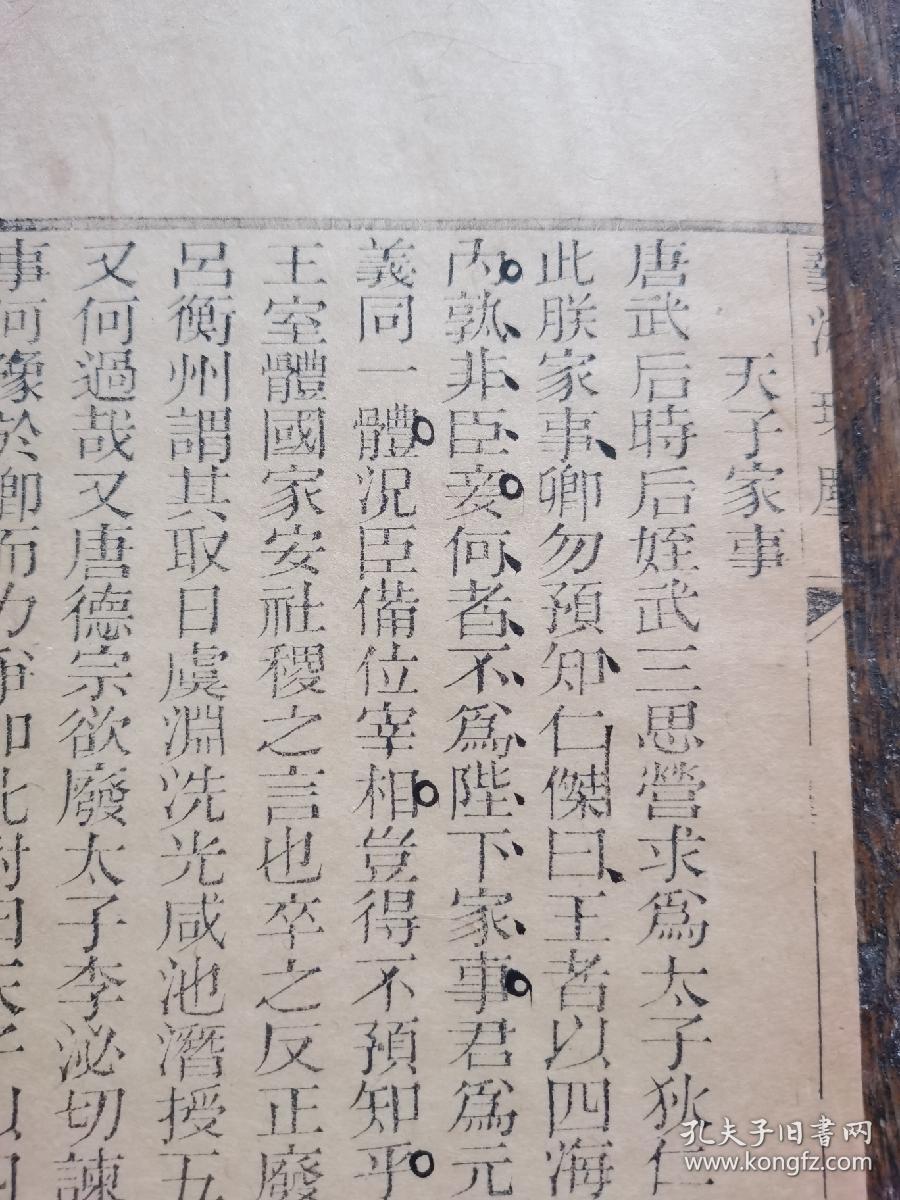 天子家事
唐武后時后姪武三思營求爲太子狄仁
此朕家事卿勿預知仁傑曰王者以四海
內孰非臣妾何者不爲陛下家事君爲元
義同一體況臣備位宰相豈得不預知乎
王室體國家安社稷之言也卒之反正廢
呂衡州謂其取日虞淵洗光咸池潛授五
又何過哉又唐德宗欲廢太子李泌切諫
事何豫於卿而力爭如此對曰天子以四
孔夫子旧书网
www.kongfz.com